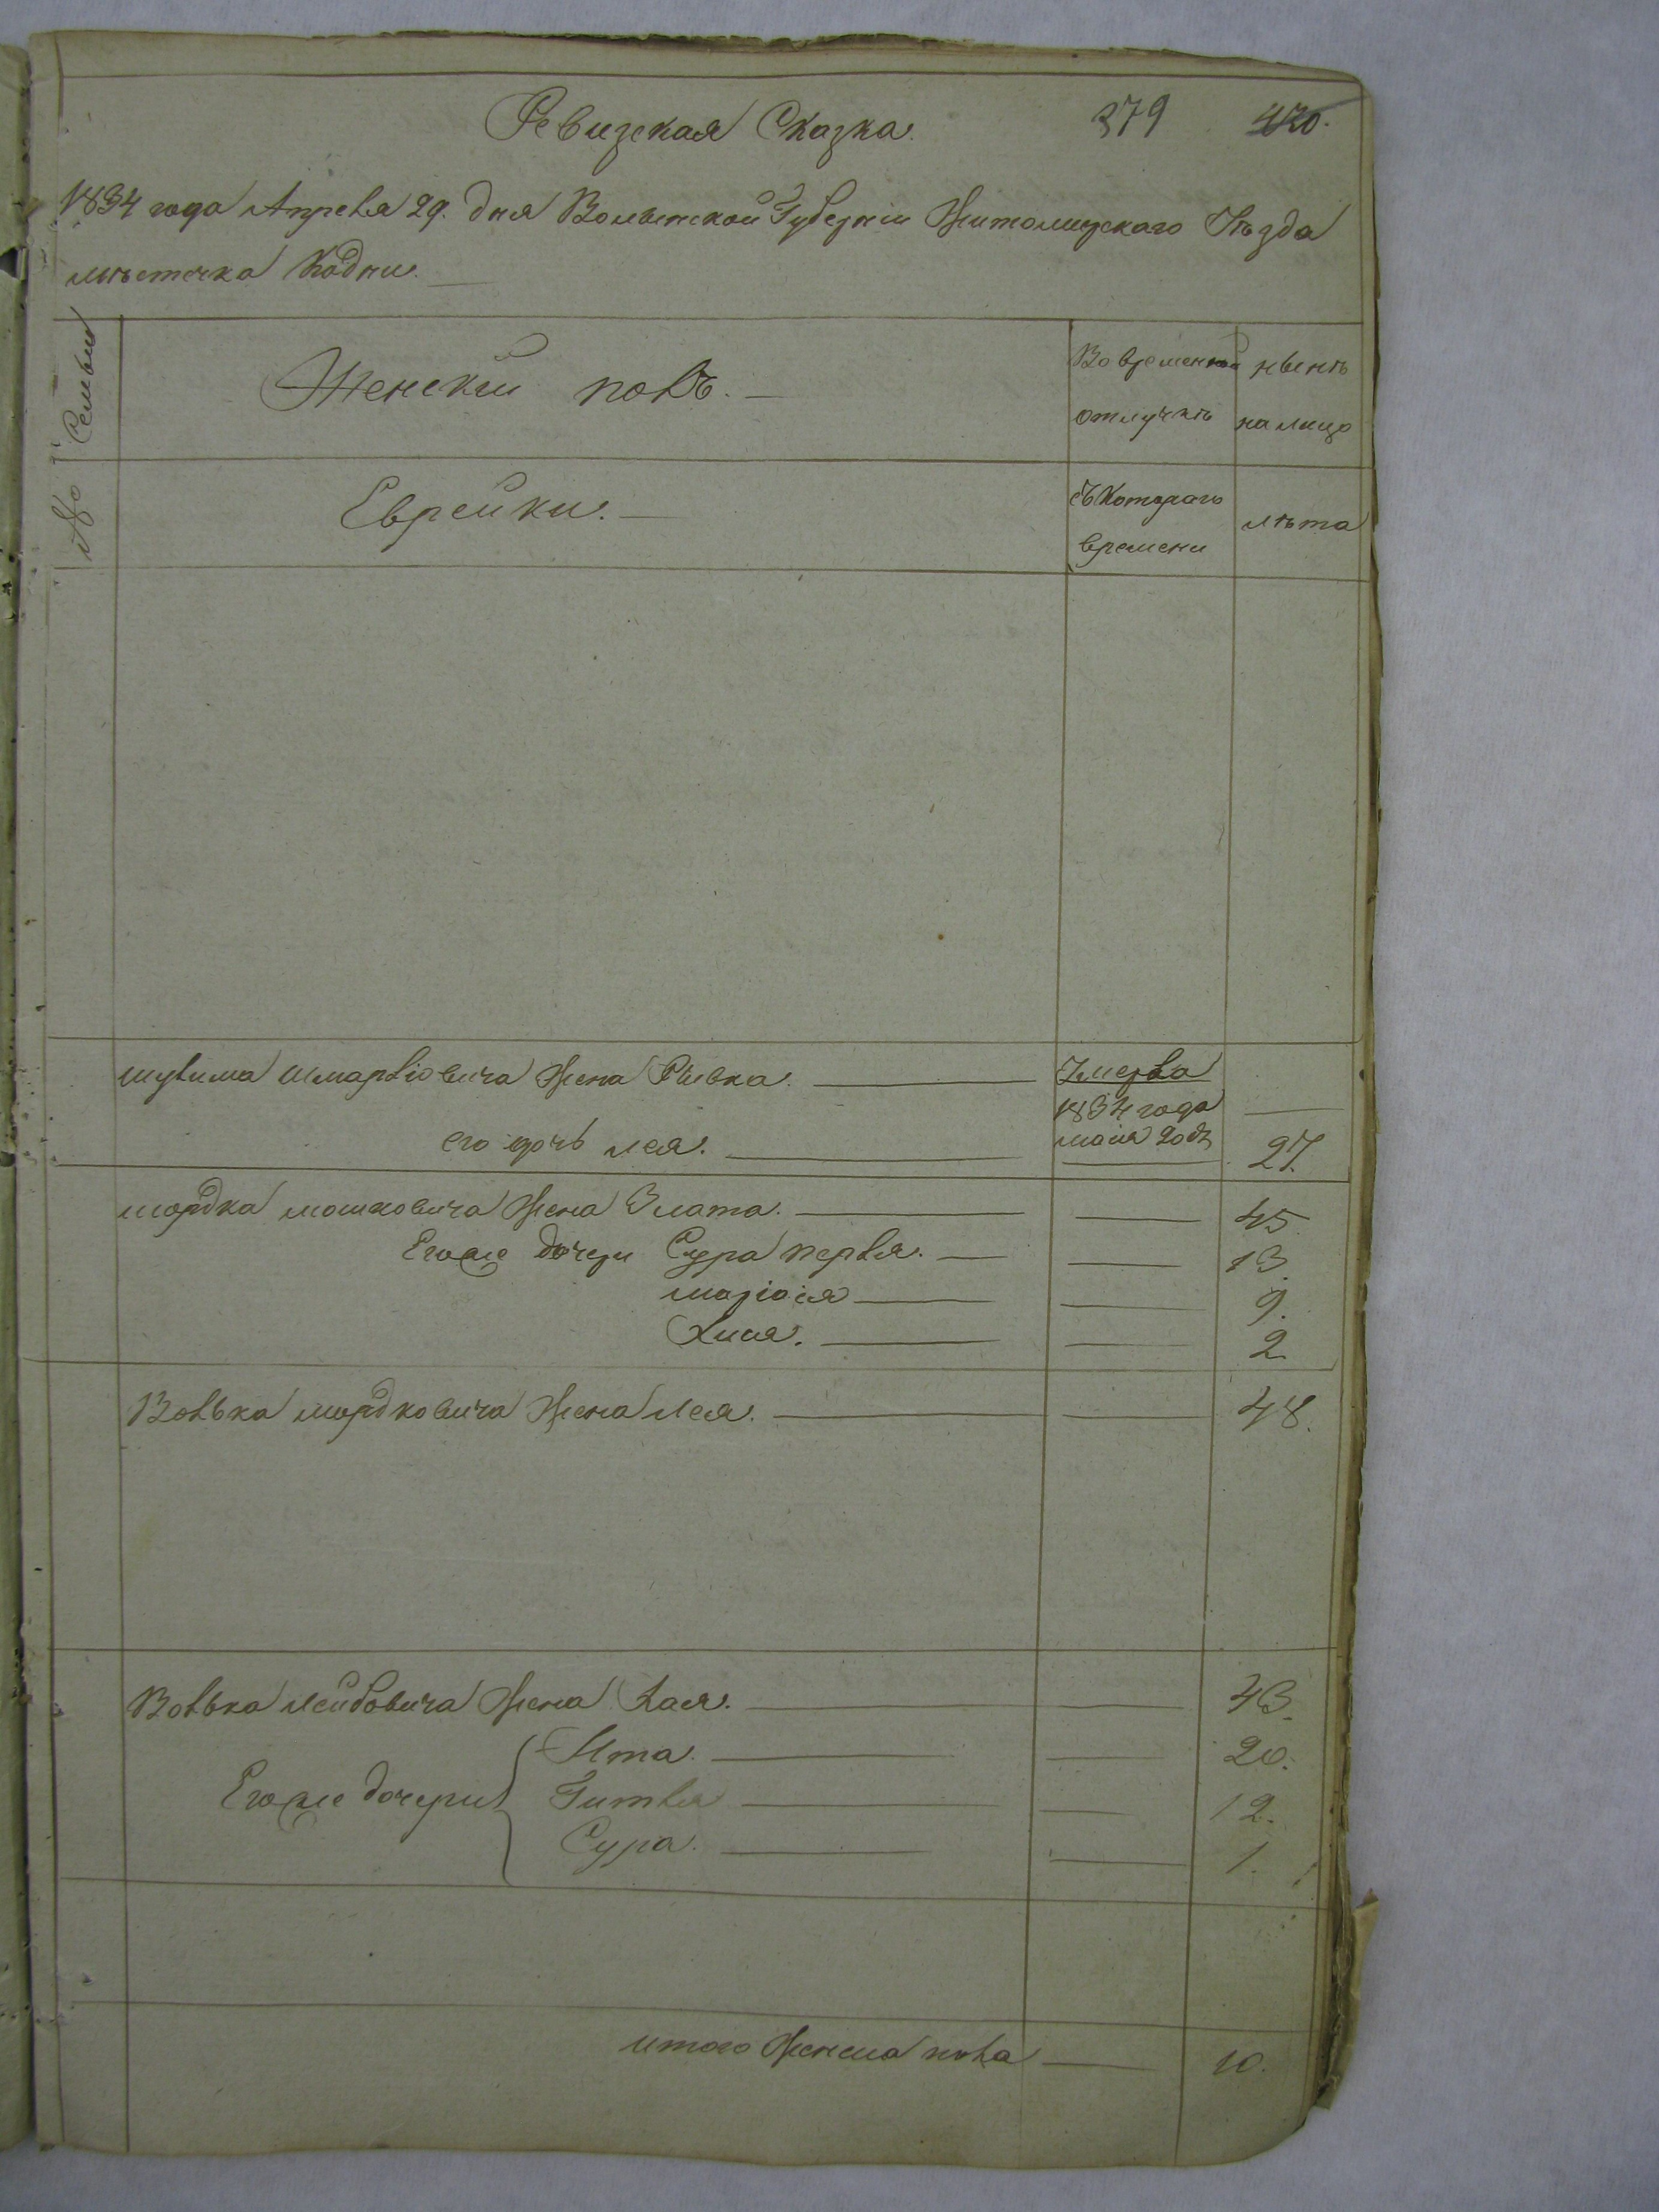 Ревизская Сказка. 379 420.
1834 года Апреля 29. дня Волынской Губерніи Житомирскаго Уѣзда
мѣстечка Кодни.
№ Семьи
Женскій полъ.
Во временной отлучкѣ
нынѣ на лицо
Еврейки.
съ Котораго времени
лѣта
шулима шмарліовича Жена Рывка. Умерла
1834 года
его дочь лея. маія 20 д. 27.
мордка мошковича Жена Злата. 45
Егоже дочери Сура перля. 13.
маріася 9.
Хися. 2
Волька мордковича Жена лея. 48.
Волька лейбовича Жена Хая. 43.
Ита. 20.
Егоже дочери Гитля 12.
Сура. 1.
итого женска пола 10.